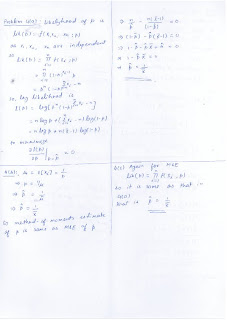 Problem 6(a): Likelihood of p is
lik(p) = f(x₁, x₂, … xₙ; p)
as x₁, x₂, … xₙ are independent
so lik(p) = ∏ᵢ₌₁ⁿ f(xᵢ; p)
= ∏ᵢ₌₁ⁿ p(1-p)^(xᵢ-1)
= pⁿ (1-p)^(Σxᵢ - n)
so, log likelihood is
l(p) = log[pⁿ (1-p)^(Σxᵢ - n)]
= n log p + (Σxᵢ - n) log(1-p)
= n log p + n(x̄-1) log(1-p)
to
∂l(p)/∂p |p=p̂ = 0
⇒ n/p̂ - n(x̄-1)/(1-p̂) = 0
⇒ (1-p̂) - p̂(x̄-1) = 0
⇒ 1 - p̂ - p̂x̄ + p̂ = 0
⇒ 1 - p̂x̄ = 0
⇒ p̂ = 1/x̄
6(b): μ₁ = E[Xᵢ] = 1/p
⇒ p = 1/μ₁
⇒ p̂ = 1/μ̂₁
⇒ p̂ = 1/x̄
so method of moments estimate
of p is same as MLE of p
6(c) Again for MLE
lik(p) = ∏ᵢ₌₁ⁿ f(xᵢ; p)
so it is same as that in
6(a)
that is p̂ = 1/x̄